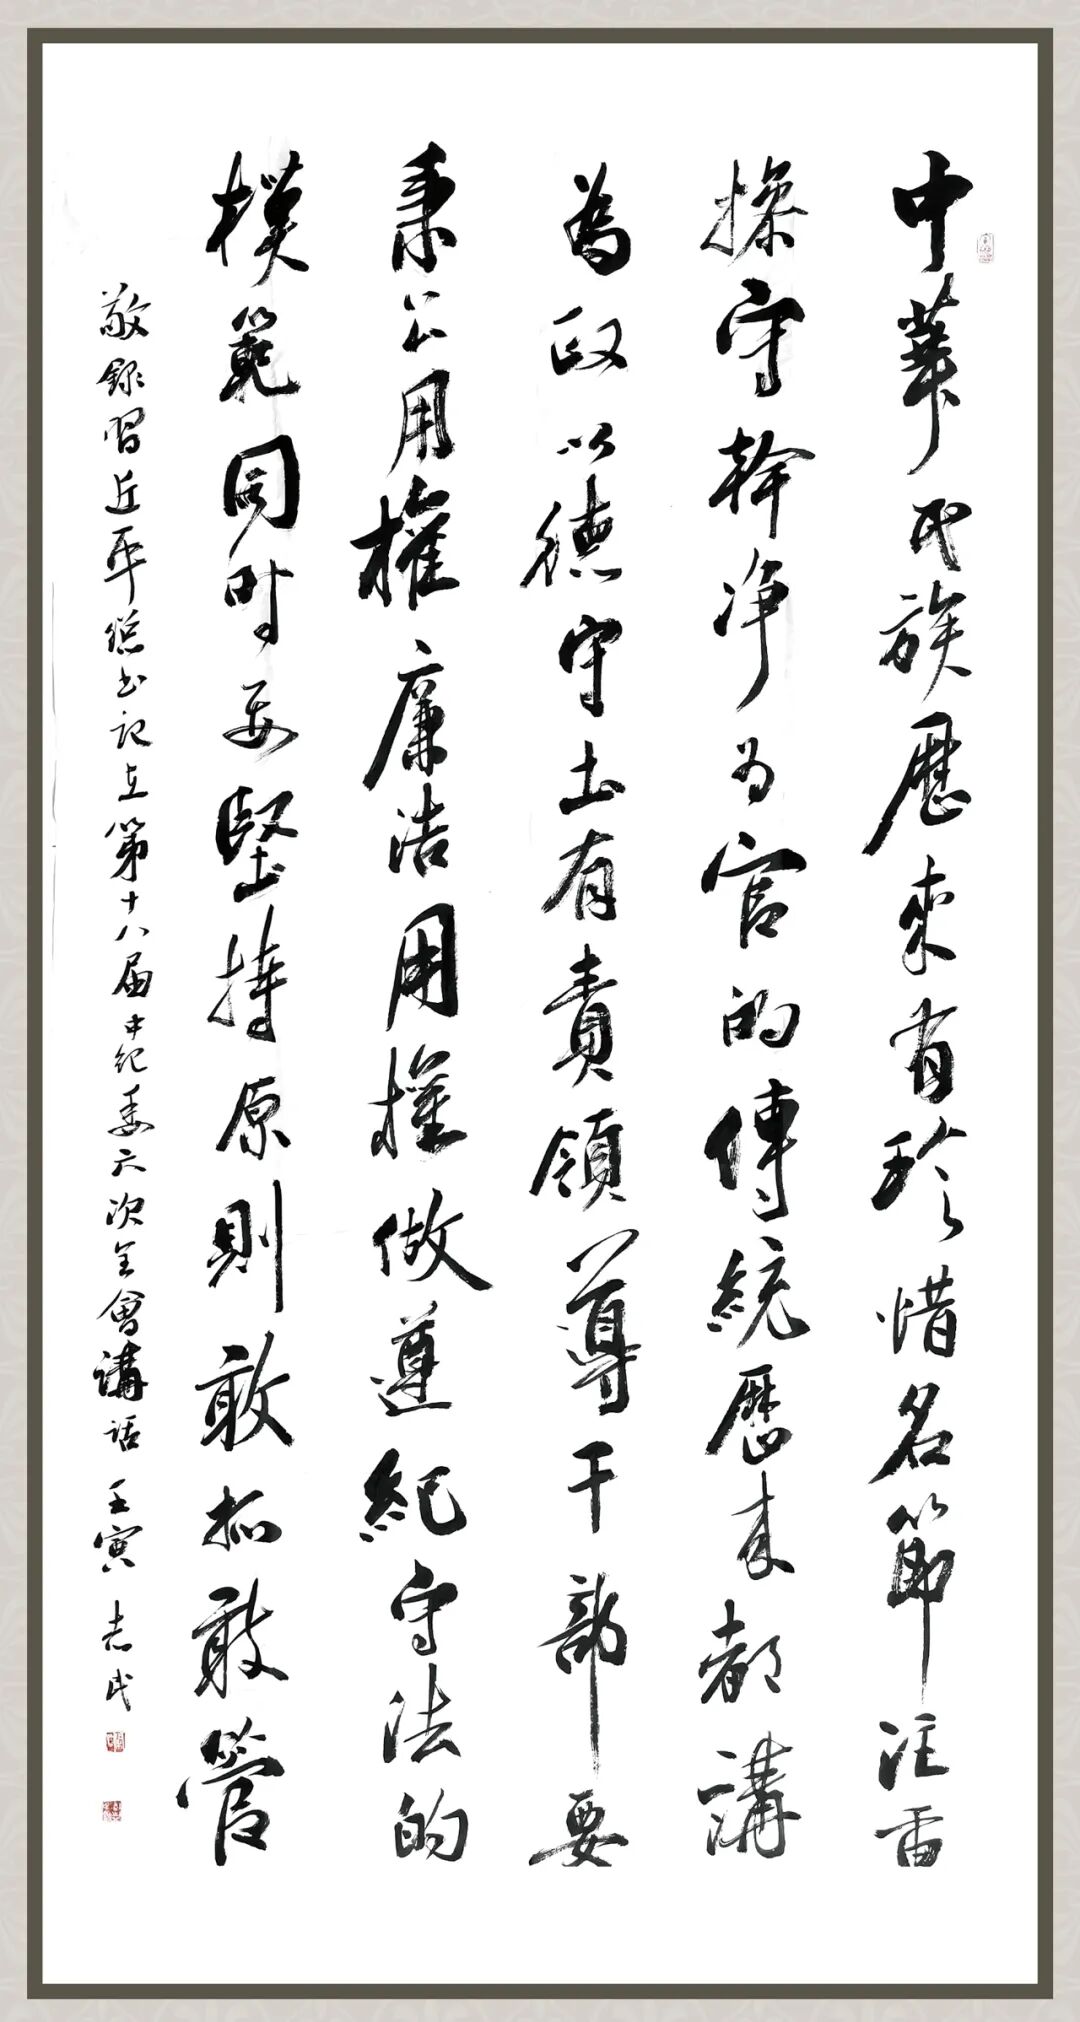 中華民族歷來有珍惜名節注重
操守幹净为官的傳統歷来都講
為政以德守土有責領導干部要
秉公用權廉洁用權做遵紀守法的
模範同时要堅持原則敢抓敢管
敬録習近平总书记在第十八届中纪委六次全會講话壬寅志民